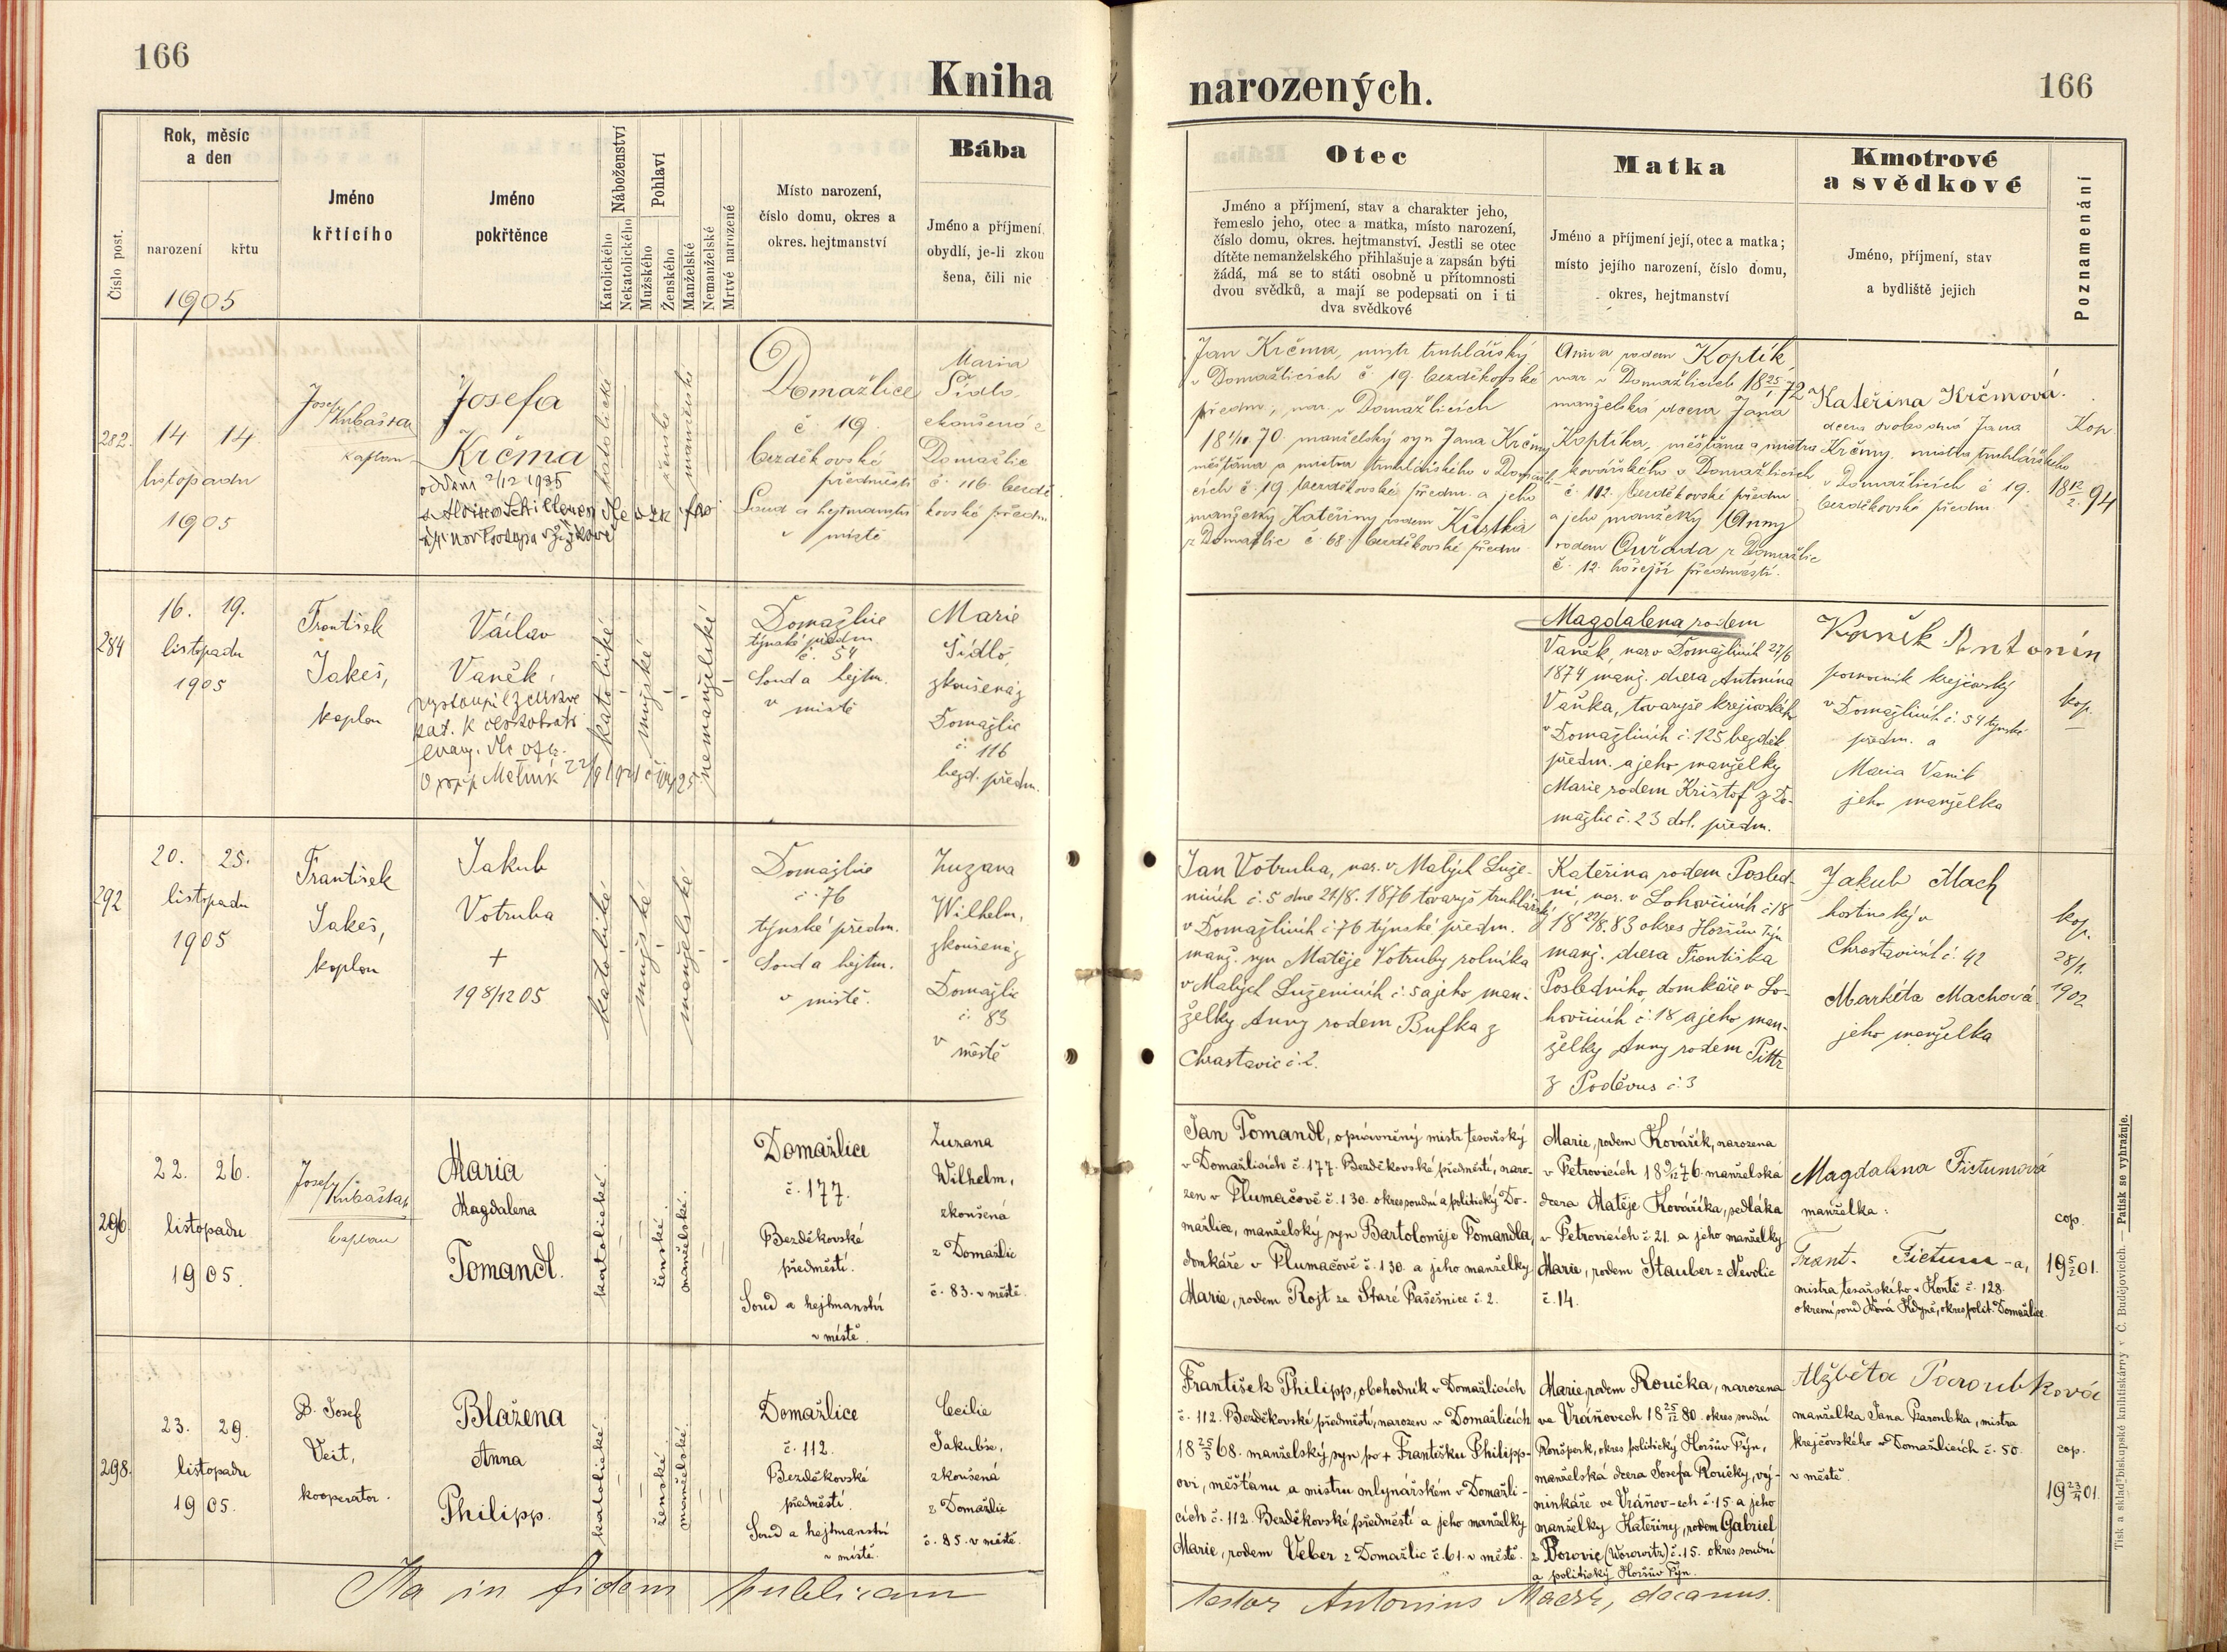 166
Kniha
narozených.
166
Číslo post.
Rok, měsíc
a den
narození
křtu
1905
Jméno
křtícího
Jméno
pokřtěnce
Náboženství
Katolického
Nekatolického
Pohlaví
Mužského
Ženského
Manželské
Nemanželské
Mrtvé narozené
Místo narození,
číslo domu, okres a
okres. hejtmanství
Bába
Jméno a příjmení,
obydlí, je-li zkou
šena, čili nic
Otec
Jméno a příjmení, stav a charakter jeho,
řemeslo jeho, otec a matka, místo narození,
číslo domu, okres. hejtmanství. Jestli se otec
dítěte nemanželského přihlašuje a zapsán býti
žádá, má se to státi osobně u přítomnosti
dvou svědků, a mají se podepsati on i ti
dva svědkové
Matka
Jméno a příjmení její, otec a matka;
místo jejího narození, číslo domu,
okres, hejtmanství
Kmotrové
a svědkové
Jméno, příjmení, stav
a bydliště jejich
Poznamenání
282.
14 14
listopadu
1905
Josef
Kubaštan
kaplan
Josefa
Krčma
oddána 2/12 1935
katolické
ženské
manželské
Domažlice
č. 19.
bezděkovské
předměstí
Soud a hejtmanství
v místě
Maria
Sídlo,
zkoušená z
Domažlic
č. 116 bezdě
kovské předm.
Jan Krčma, mistr truhlářský
v Domažlicích č. 19. bezděkovské
předm., nar. v Domažlicích
18 1/10 70. manželský syn Jana Krčmy
měšťana a mistra truhlářského v Domažli-
cích č. 19 bezděkovské předm. a jeho
manželky Kateřiny rodem
z Domažlic č. 68. bezděkovské předm.
Anna rodem Koptík,
nar. v Domažlicích 18 25/1 72
manželská dcera Jana
Koptíka, měšťana a mistra
kovářského v Domažlicích
č. 102. bezděkovské předm.
a jeho manželky Anny
rodem Ouřada z Domažlic
č. 12. hořejší předměstí.
Kateřina Krčmová.
dcera svobodná Jana
Krčmy, mistra truhlářského
v Domažlicích č 19.
bezděkovské předm.
Kop
18 12/2 94
284
16. 19.
listopadu
1905
František
Jakeš,
kaplan
Václav
Vaněk,
vystoupil z církve
kat. k českobratr.
evang. dle ozn.
katolické
mužské
nemanželské
Domažlice
týnské předm
č. 54
Soud a hejtm.
v místě
Marie
Sídlo,
zkoušená z
Domažlic
č. 116
bezd. předm.
Magdalena rodem
Vaněk, nar. v Domažlicích 27/6
1874 manž. dcera Antonína
Vaňka, tovaryše krejčovského
v Domažlicích č. 125 bezděk.
předm. a jeho manželky
Marie rodem Krištof z Do-
mažlic č. 23 dol. předm.
Vaněk Antonín
pomocník krejčovský
v Domažlicích č. 54 týnské
předm. a
Maria Vaněk
jeho manželka
kop.
292
20. 25.
listopadu
1905
František
Jakeš,
kaplan
Jakub
Votruba
+
19 8/12 05
katolické
mužské
manželské
Domažlice
č. 76
týnské předm.
Soud a hejtm.
v místě.
Zuzana
Wilhelm,
zkoušená z
Domažlic
č. 83
v městě
Jan Votruba, nar. v Malých Luže-
nicích č. 5 dne 21/8. 1876 tovaryš truhlářský
v Domažlicích č. 76 týnské předm.
manž. syn Matěje Votruby rolníka
v Malých Luženicích č. 5 a jeho man-
želky Anny rodem Bufka z
Chrastavic č. 2.
Kateřina rodem Posled-
ní, nar. v Lohovčicích č. 18
83 okres Horšův Týn
manž. dcera Františka
Posledního, domkáře v Lo-
hovčicích č. 18 a jeho man-
želky Anny rodem Pittr
z Poděvus č. 3
Jakub Mach
hostinský v
Chrastavicích č. 42
Markéta Machová
jeho manželka
kop.
28/1.
1902
296.
22. 26.
listopadu
1905.
Josef
Kubaštan
kaplan
Maria
Magdalena
Tomandl.
katolické.
ženské.
manželské.
Domažlice
č. 177.
Bezděkovské
předměstí.
Soud a hejtmanství
v místě.
Zuzana
Wilhelm,
zkoušená
z Domažlic
č. 83. v městě.
Jan Tomandl, oprávněný mistr tesařský
v Domažlicích č. 177. Bezděkovské předměstí, naro-
zen v Tlumačově č. 130. okres soudní a politický Do-
mažlice, manželský syn Bartoloměje Tomandla,
domkáře v Tlumačově č. 130. a jeho manželky
Marie, rodem Rojt ze Staré Pašešnice č. 2.
Marie, rodem Kovářík, narozena
v Petrovicích 18 9/12 76. manželská
dcera Matěje Kováříka, sedláka
v Petrovicích č. 21. a jeho manželky
Marie, rodem Stauber z Nevolic
č. 14.
Magdalena Fictumová
manželka:
Frant. Fictum-a,
mistra tesařského v Koutě č. 128.
okresní soud Nová Kdyně, okres polit. Domažlice.
cop.
19 5/2 01.
298.
23. 29.
listopadu
1905.
B. Josef
Veit,
kooperator.
Blažena
Anna
Philipp.
katolické.
ženské.
manželské.
Domažlice
č. 112.
Bezděkovské
předměstí.
Soud a hejtmanství
v místě.
Cecilie
Jakubše,
zkoušená
z Domažlic
č. 85. v městě.
František Philipp, obchodník v Domažlicích
č. 112. Bezděkovské předměstí, narozen v Domažlicích
18 25/3 68. manželský syn po + Františku Philipp-
ovi, měšťanu a mistru mlynářském v Domažli-
cích č. 112. Bezděkovské předměstí a jeho manželky
Marie, rodem Veber z Domažlic č. 61. v městě.
Marie, rodem Roučka, narozena
ve Vráňovech 18 25/12 80. okres soudní
Ronšperk, okres politický Horšův Týn,
manželská dcera Josefa Roučky, vý-
minkáře ve Vráňov-ech č. 15. a jeho
manželky Kateřiny, rodem Gabriel
z Borovic (Worowitz) č. 15. okres soudní
a politický Horšův Týn.
Alžběta Paroubková
manželka Jana Paroubka, mistra
krejčovského v Domažlicích č. 50.
v městě.
cop.
19 23/4 01.
Ita in fidem publicam
testor Antonius Macek, decanus.
Tisk a sklad biskupské knihtiskárny v Č. Budějovicích. — Patisk se vyhražuje.